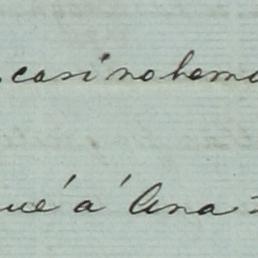 casi no hemo
ué á Ana